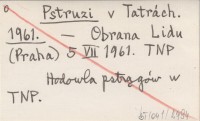 Pstruzi v Tatrách.
1961. — Obrana Lidu
(Praha) 5 VII 1961. TNP
Hodowla pstrągów w
TNP.